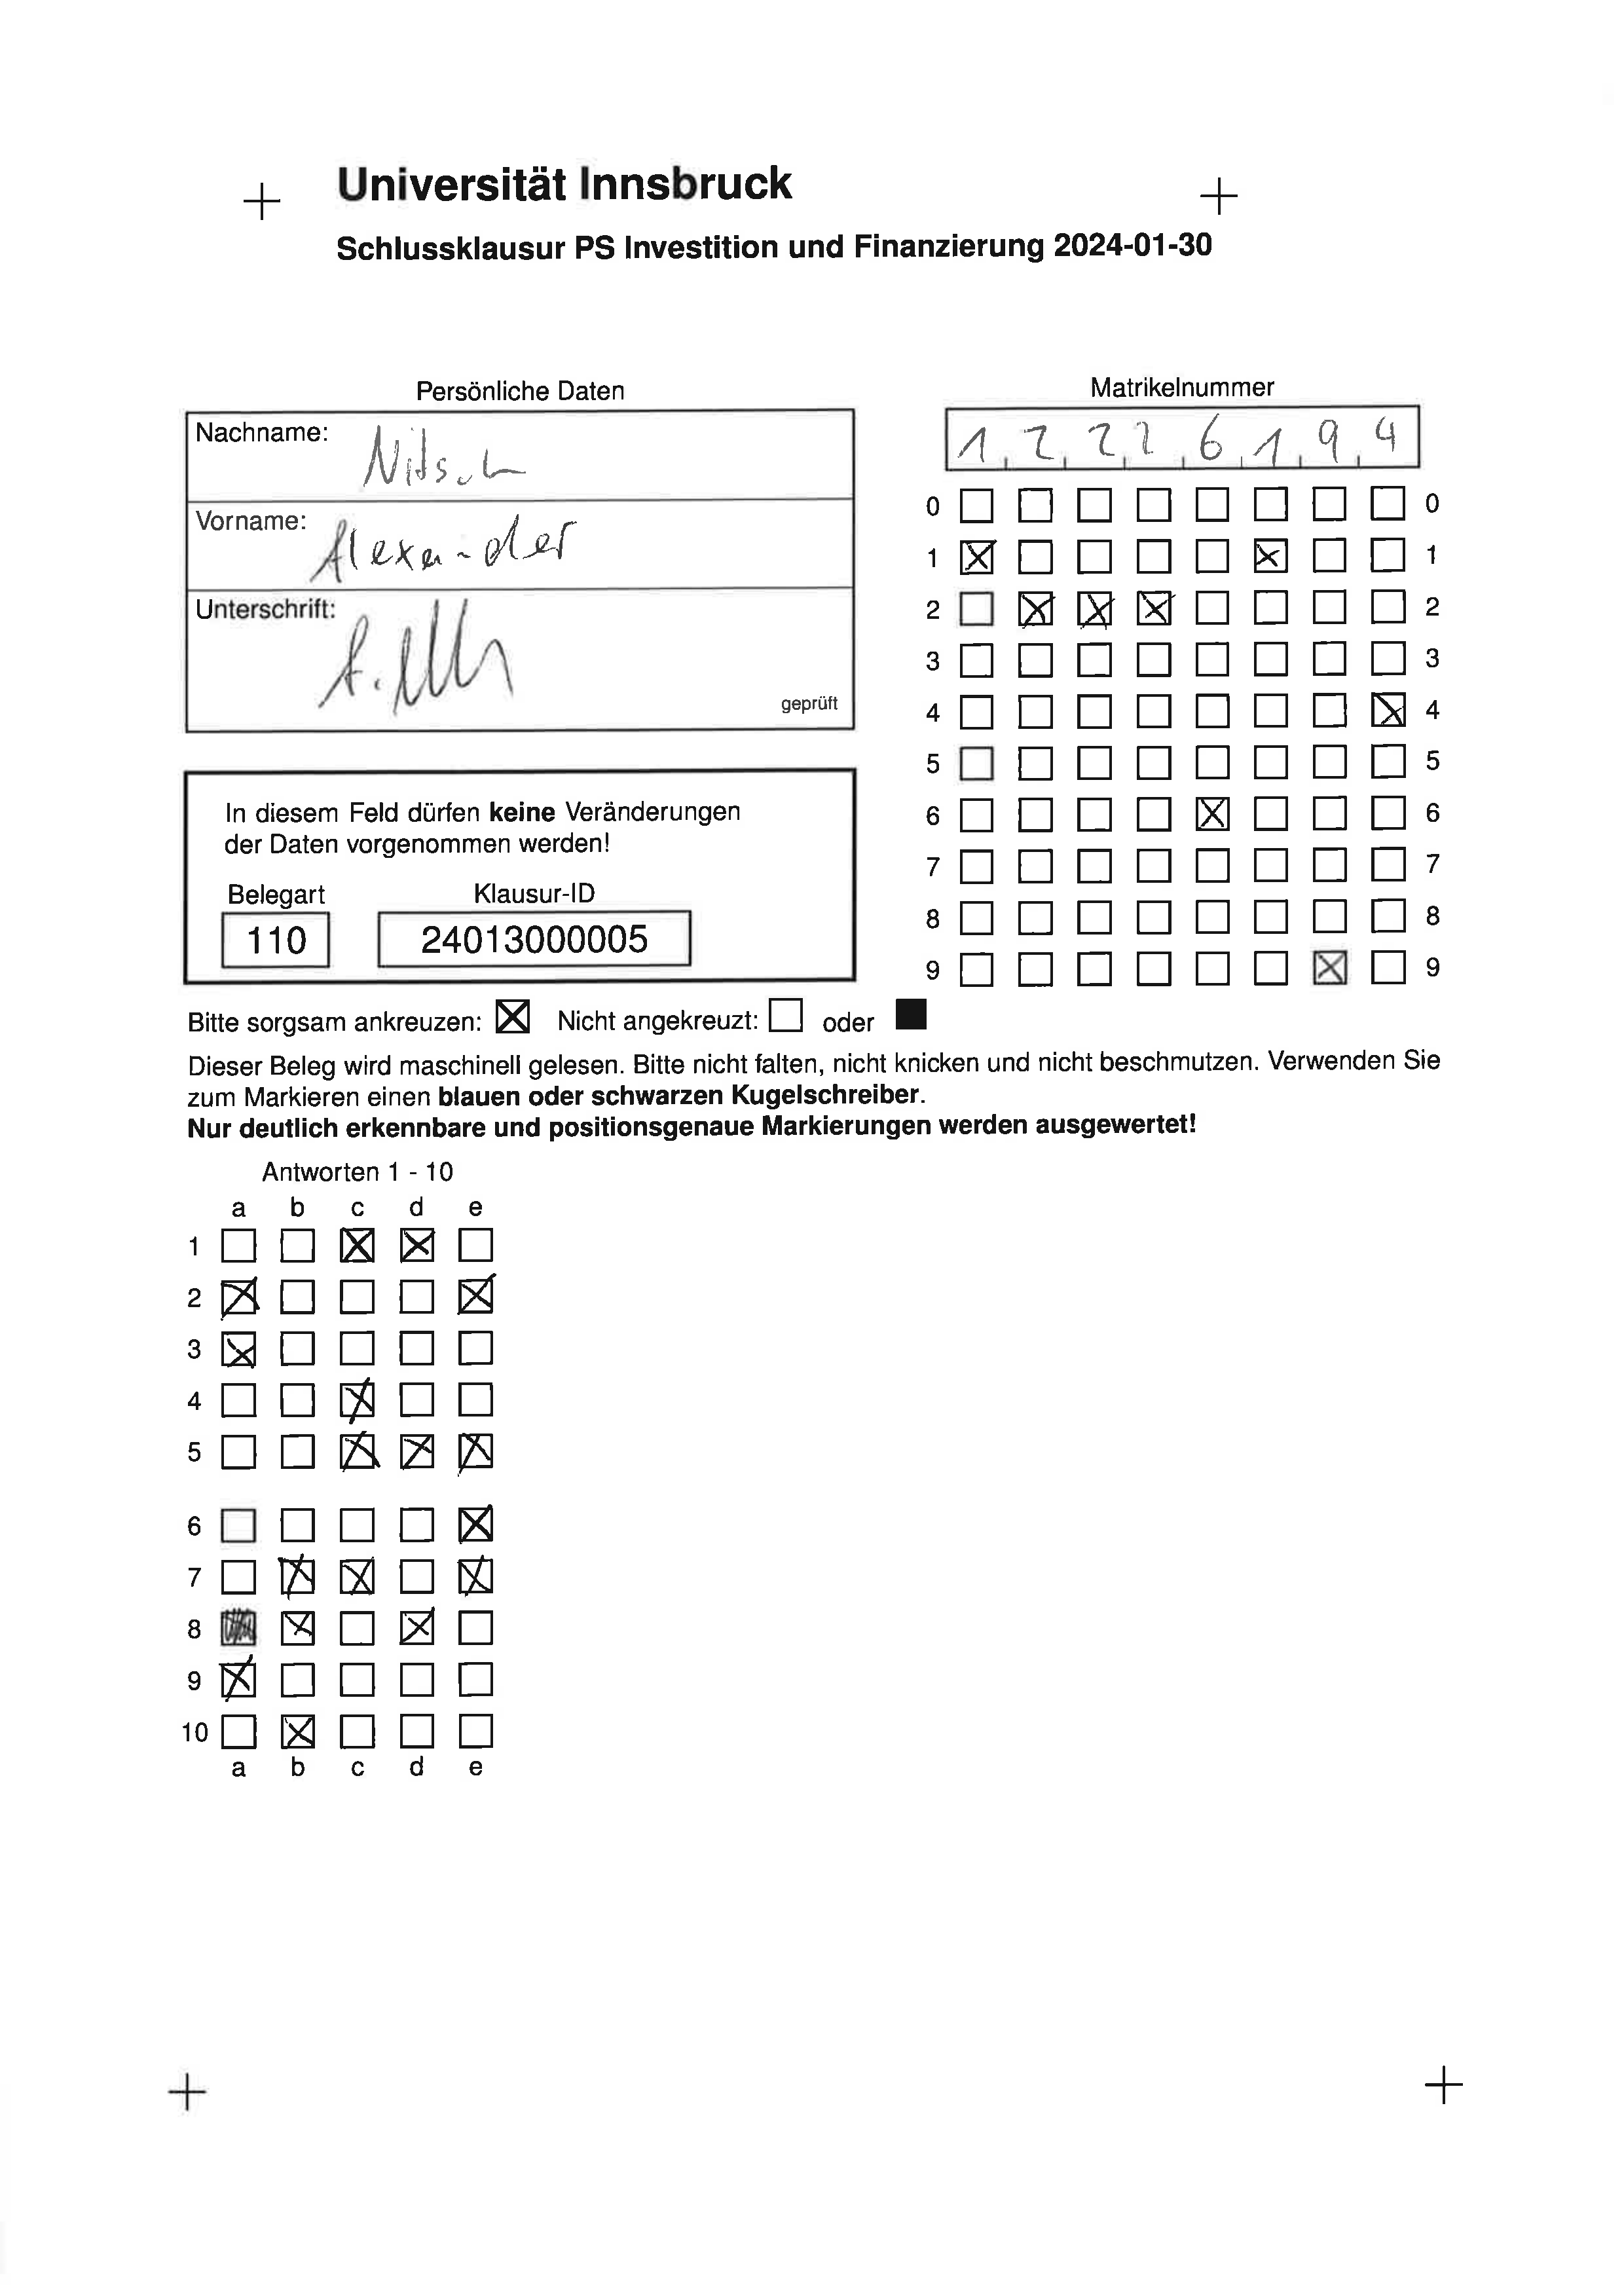 Universität Innsbruck
Schlussklausur PS Investition und Finanzierung 2024-01-30
Persönliche Daten
Nachname: Nitsch
Vorname: Alexander
Unterschrift:
geprüft
In diesem Feld dürfen keine Veränderungen
der Daten vorgenommen werden!
Belegart Klausur-ID
110 24013000005
Matrikelnummer
1 2 2 2 6 1 9 4
0 0
1 1
2 2
3 3
4 4
5 5
6 6
7 7
8 8
9 9
Bitte sorgsam ankreuzen: Nicht angekreuzt: oder
Dieser Beleg wird maschinell gelesen. Bitte nicht falten, nicht knicken und nicht beschmutzen. Verwenden Sie
zum Markieren einen blauen oder schwarzen Kugelschreiber.
Nur deutlich erkennbare und positionsgenaue Markierungen werden ausgewertet!
Antworten 1 - 10
a b c d e
1
2
3
4
5
6
7
8
9
10
a b c d e